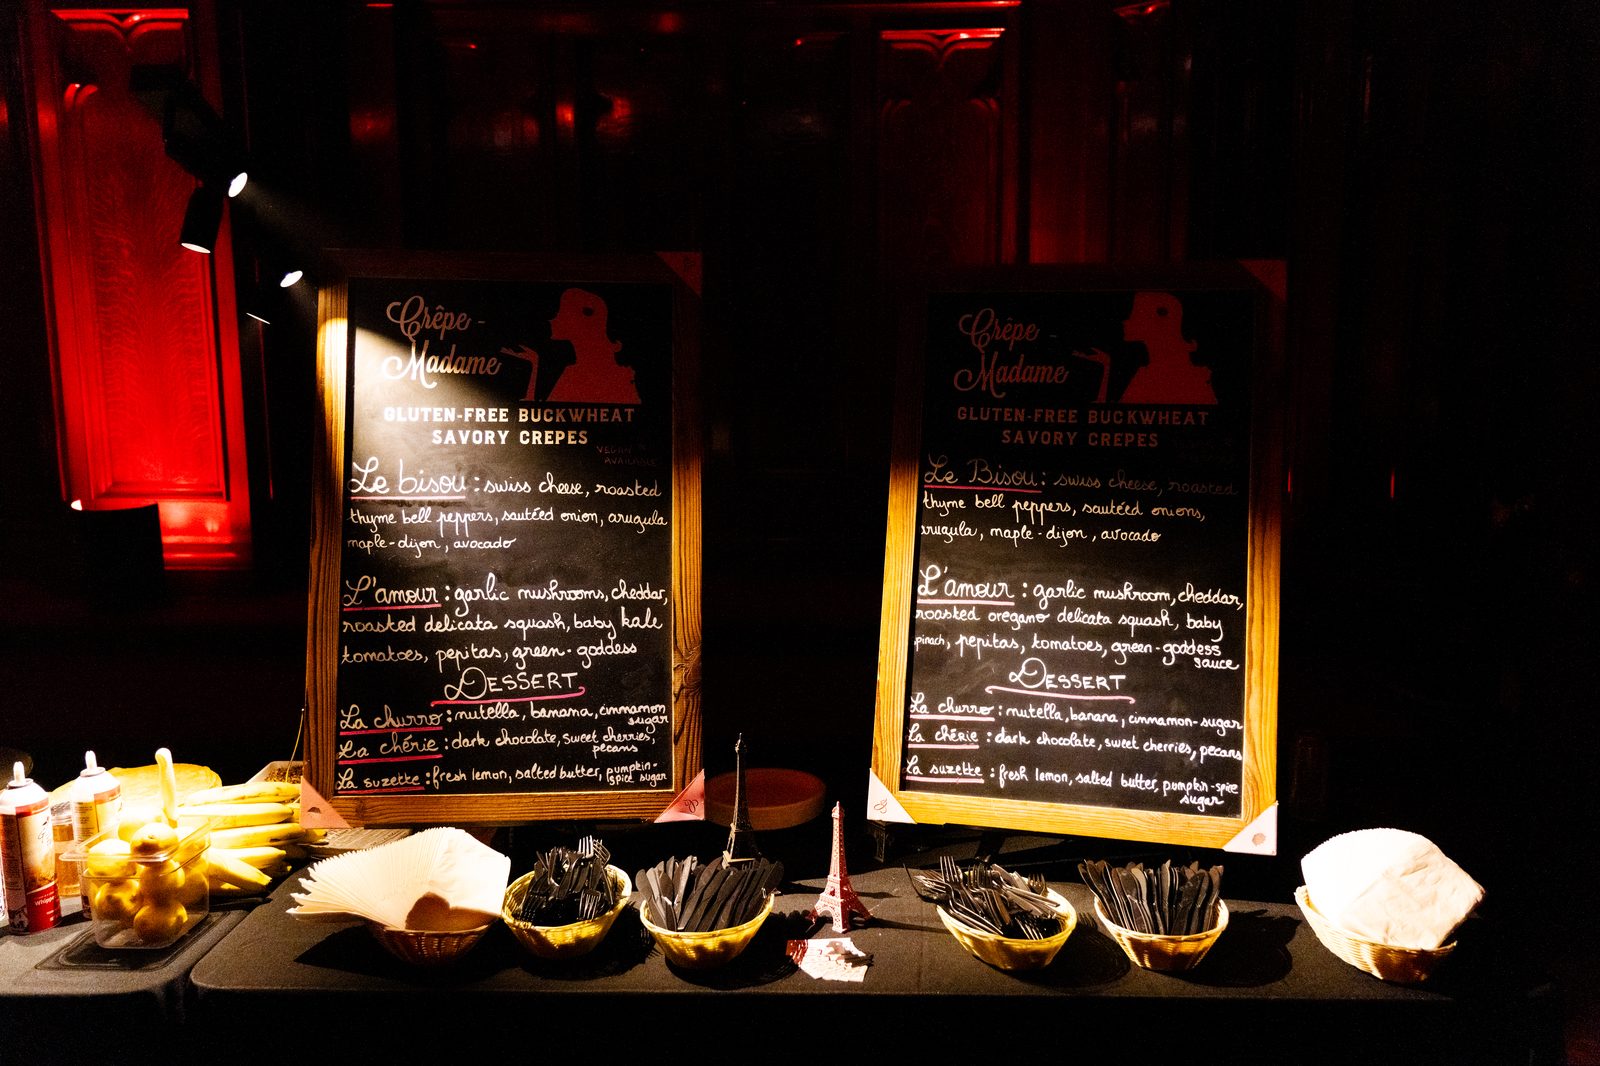 Crêpe-
Madame
GLUTEN-FREE BUCKWHEAT
SAVORY CREPES
VEGAN
AVAILABLE
Le bisou : swiss cheese, roasted
thyme bell peppers, sautéed onion, arugula
maple-dijon, avocado
L'amour : garlic mushrooms, cheddar,
roasted delicata squash, baby kale
tomatoes, pepitas, green-goddess
DESSERT
La churro : nutella, banana, cinnamon
sugar
La chérie : dark chocolate, sweet cherries,
pecans
La suzette : fresh lemon, salted butter, pumpkin-
spice sugar
Crêpe-
Madame
GLUTEN-FREE BUCKWHEAT
SAVORY CREPES
Le Bisou : swiss cheese, roasted
thyme bell peppers, sautéed onions,
arugula, maple-dijon, avocado
L'amour : garlic mushroom, cheddar,
roasted oregano delicata squash, baby
spinach, pepitas, tomatoes, green-goddess
sauce
DESSERT
La churro : nutella, banana, cinnamon-sugar
La chérie : dark chocolate, sweet cherries, pecans
La suzette : fresh lemon, salted butter, pumpkin-spice
sugar